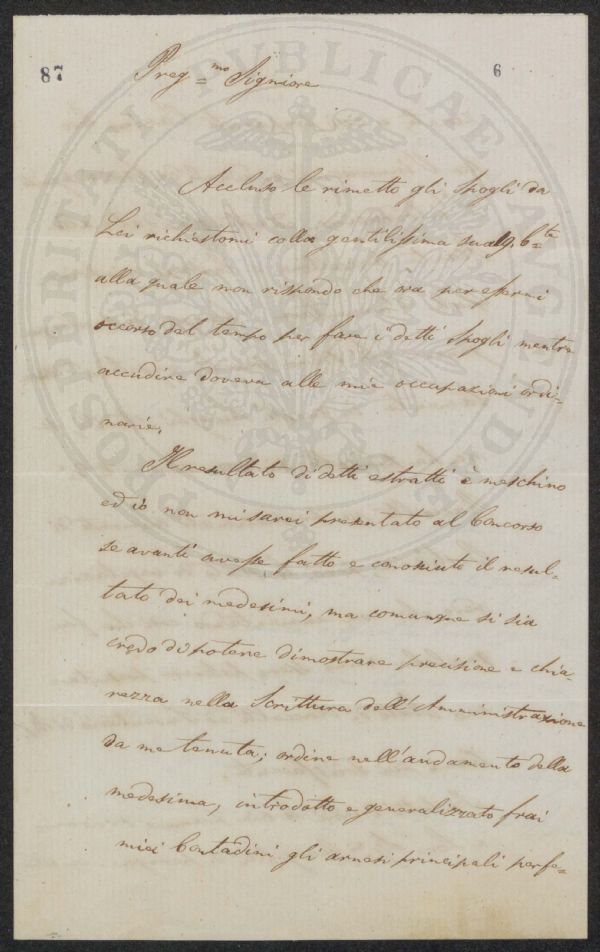 87
6
Preg=mo Signiore
Accluso le rimetto gli spogli da
Lei richiestomi colla gentilissima sua
alla quale non rispondo che ora per essermi
occorso del tempo per fare i detti spogli mentre
accudire doveva alle mie occupazioni ordi-
narie.
Il resultato di detti estratti è meschino
ed io non mi sarei presentato al Concorso
se avanti avesse fatto e conosciuto il resul-
tato dei medesimi, ma comunque si sia
credo di potere dimostrare precisione e chia-
rezza nella Scrittura dell'Amministrazione
da me tenuta; ordine nell'andamento della
medesima, introdotto e generalizzato frai
miei Contadini gli arnesi principali perfe=
PROSPERITATI PUBLICAE AUGENDAE